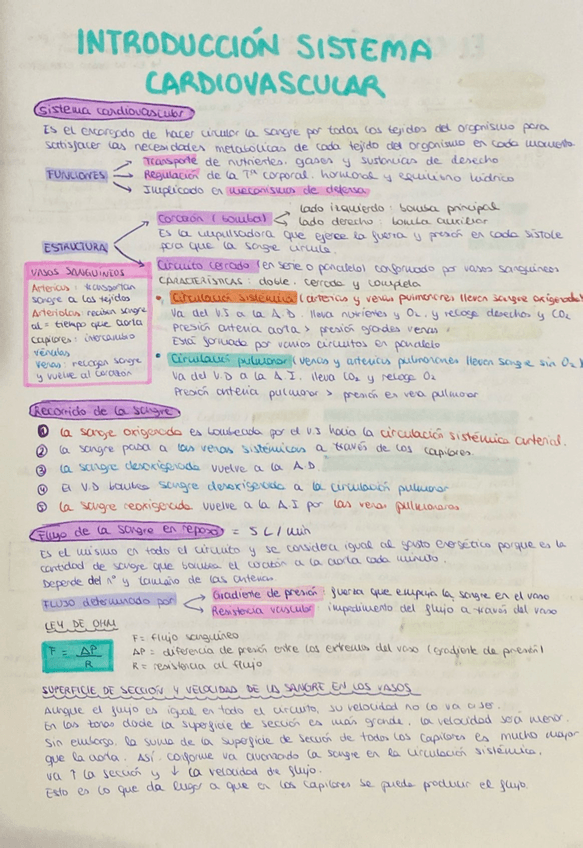 INTRODUCCIÓN SISTEMA
CARDIOVASCULAR
Sistema cardiovascular
Es el encargado de hacer circular la sangre por todos los tejidos del organismo para
satisfacer las necesidades metabólicas de cada tejido del organismo en cada momento.
FUNCIONES
Transporte de nutrientes, gases y sustancias de desecho
Regulación de la Tª corporal, hormonal y equilibrio hídrico
Implicado en mecanismos de defensa
ESTRUCTURA
Corazón (bomba)
lado izquierdo: bomba principal
lado derecho: bomba auxiliar
Es la impulsadora que ejerce la fuerza y presión en cada sístole
para que la sangre circule.
Circuito cerrado (en serie o paralelo) conformado por vasos sanguíneos
CARACTERÍSTICAS: doble, cerrada y completa
• Circulación sistémica (arterias y venas pulmonares llevan sangre oxigenada)
Va del V.I a la A.D. lleva nutrientes y O2, y recoge desechos y CO2
Presión arteria aorta > presión grades venas
Está formado por varios circuitos en paralelo
• Circulación pulmonar (venas y arterias pulmonares llevan sangre sin O2)
Va del V.D a la A.I. lleva CO2 y recoge O2
Presión arteria pulmonar > presión en vena pulmonar
VASOS SANGUÍNEOS
Arterias: transportan
sangre a los tejidos
Arteriolas: reciben sangre
al = tiempo que aorta
capilares: intercambio
vénulas
venas: recogen sangre
y vuelve al corazón
Recorrido de la sangre
1 La sangre oxigenada es bombeada por el V.I hacia la circulación sistémica arterial.
2 La sangre pasa a las venas sistémicas a través de los capilares.
3 La sangre desoxigenada vuelve a la A.D
4 El V.D bombea sangre desoxigenada a la circulación pulmonar
5 La sangre reoxigenada vuelve a la A.I por las venas pulmonares
Flujo de la sangre en reposo = 5 L / min
Es el mismo en todo el circuito y se considera igual al gasto energético porque es la
cantidad de sangre que bombea el corazón a la aorta cada minuto.
Depende del nº y tamaño de las arterias
FLUJO determinado por
Gradiente de presión: fuerza que empuja la sangre en el vaso
Resistencia vascular: impedimento del flujo a través del vaso
LEY DE OHM
F = ΔP / R
F = flujo sanguíneo
ΔP = diferencia de presión entre los extremos del vaso (gradiente de presión)
R = resistencia al flujo
SUPERFICIE DE SECCIÓN Y VELOCIDAD DE LA SANGRE EN LOS VASOS
Aunque el flujo es igual en todo el circuito, su velocidad no lo va a ser.
En las zonas donde la superficie de sección es más grande, la velocidad será menor.
Sin embargo, la suma de la superficie de sección de todos los capilares es mucho mayor
que la aorta. Así, conforme va avanzando la sangre en la circulación sistémica,
va ↑ la sección y ↓ la velocidad de flujo.
Esto es lo que da lugar a que en los capilares se pueda producir el flujo.